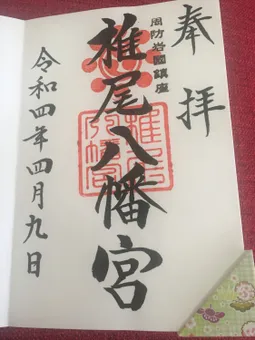 奉拝
周防岩國鎮座
椎尾八幡宮
令和四年四月九日
椎尾八幡宮